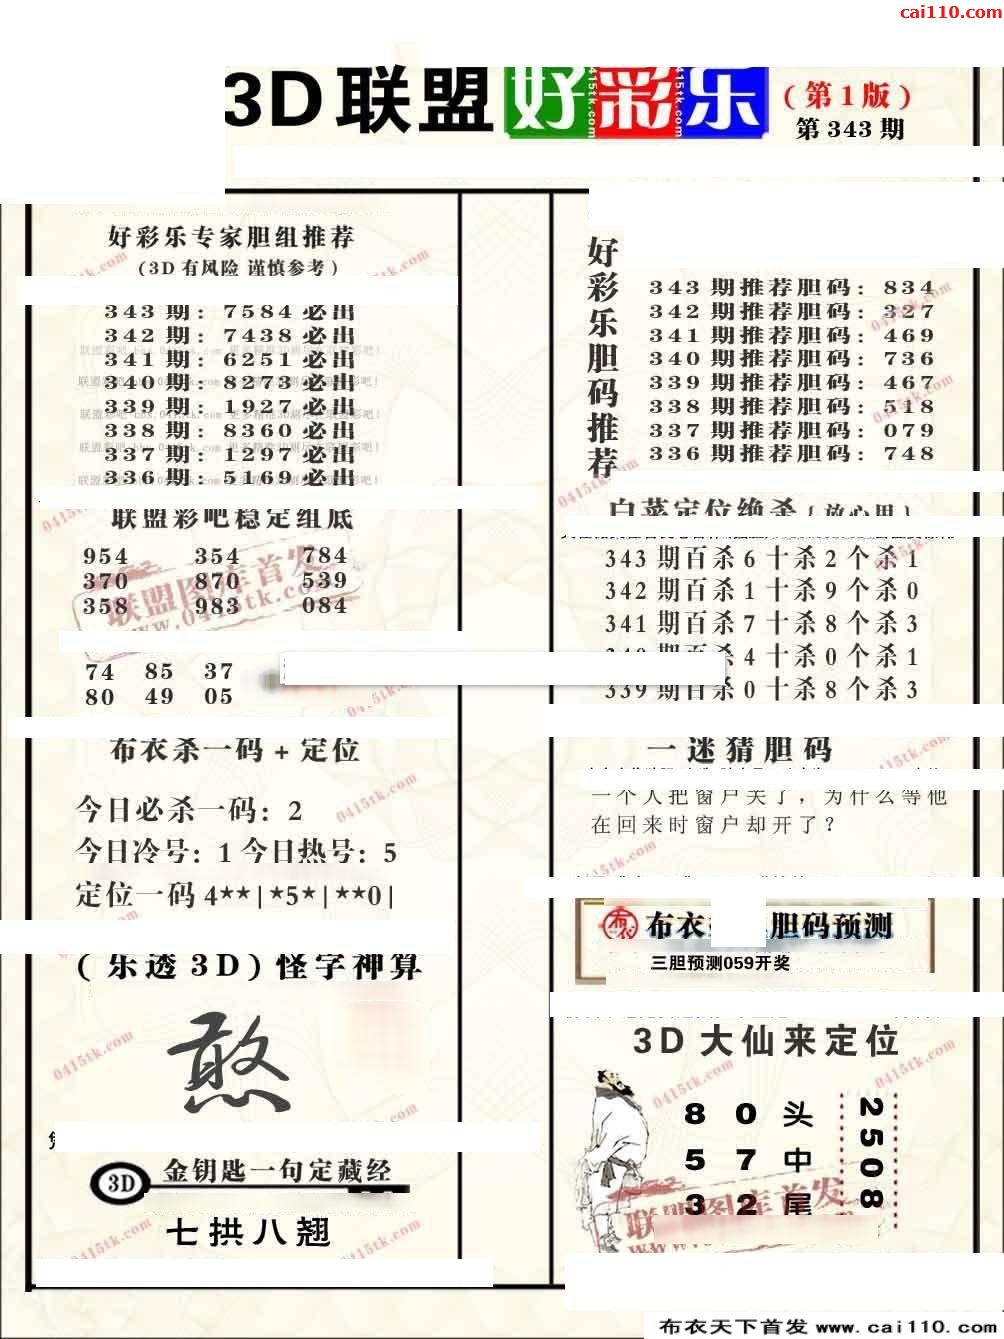 cai110.com
3D联盟好彩乐
(第1版)
第343期
好彩乐专家胆组推荐
(3D有风险 谨慎参考)
343期: 7584必出
342期: 7438必出
341期: 6251必出
340期: 8273必出
339期: 1927必出
338期: 8360必出
337期: 1297必出
336期: 5169必出
联盟彩吧稳定组底
954 354 784
370 870 539
358 983 084
联盟图库首发
www.0415tk.com
74 85 37
80 49 05
布衣杀一码+定位
今日必杀一码: 2
今日冷号: 1 今日热号: 5
定位一码 4**|*5*|**0|
(乐透3D)怪字神算
憨
3D 金钥匙一句定藏经
七拱八翘
好彩乐胆码推荐
343期推荐胆码: 834
342期推荐胆码: 327
341期推荐胆码: 469
340期推荐胆码: 736
339期推荐胆码: 467
338期推荐胆码: 518
337期推荐胆码: 079
336期推荐胆码: 748
白菜定位绝杀{放心用}
343期百杀6十杀2个杀1
342期百杀1十杀9个杀0
341期百杀7十杀8个杀3
杀4十杀0个杀1
339期百杀0十杀8个杀3
一迷猜胆码
一个人把窗户关了，为什么等他
在回来时窗户却开了？
布衣 胆码预测
三胆预测059开奖
3D大仙来定位
8 0 头
5 7 中
3 2 尾
2508
联盟图库首发
布衣天下首发 www.cai110.com